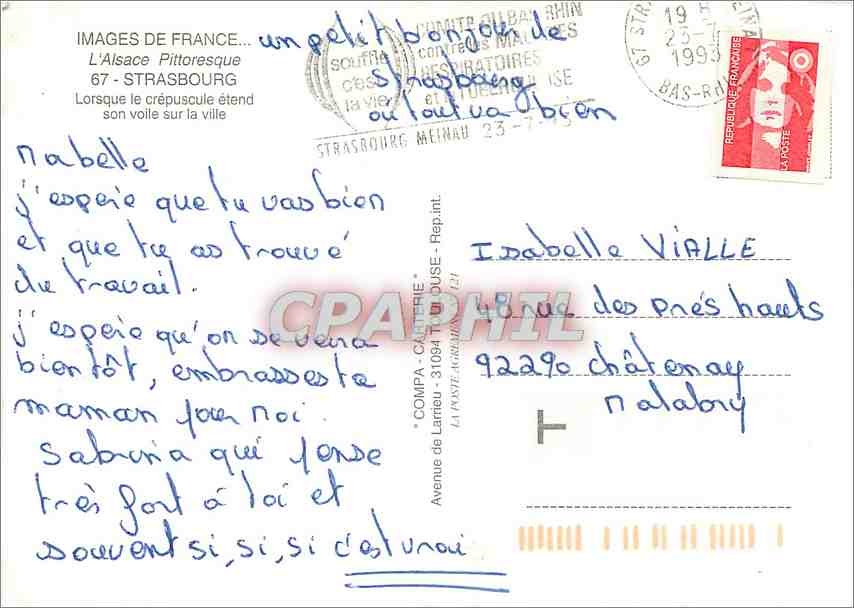 IMAGES DE FRANCE...
L'Alsace Pittoresque
67 - STRASBOURG
Lorsque le crépuscule étend
son voile sur la ville
un petit bonjour de
Strasbourg
où tout va bien
souffle
c'est
la vie
COMITE DU BAS-RHIN
contre les MALADIES
RESPIRATOIRES
et la TUBERCULOSE
STRASBOURG MEINAU 23-7-
19 H
23-7
1993
BAS-RHIN
REPUBLIQUE FRANÇAISE
LA POSTE
Mabelle
j'espère que tu vas bien
et que tu as trouvé
du travail.
j'espère qu'on se verra
bientôt, embrasses ta
maman pour moi.
Sabrina qui pense
très fort à toi et
souvent si, si, si c'est vrai
" COMPA - CARTERIE "
Avenue de Larrieu - 31094 TOULOUSE - Rep.int.
LA POSTE AGREMENT 121
Isabelle VIALLE
48 rue des Prés hauts
92290 châtenay
Malabry
T
CPAPHIL